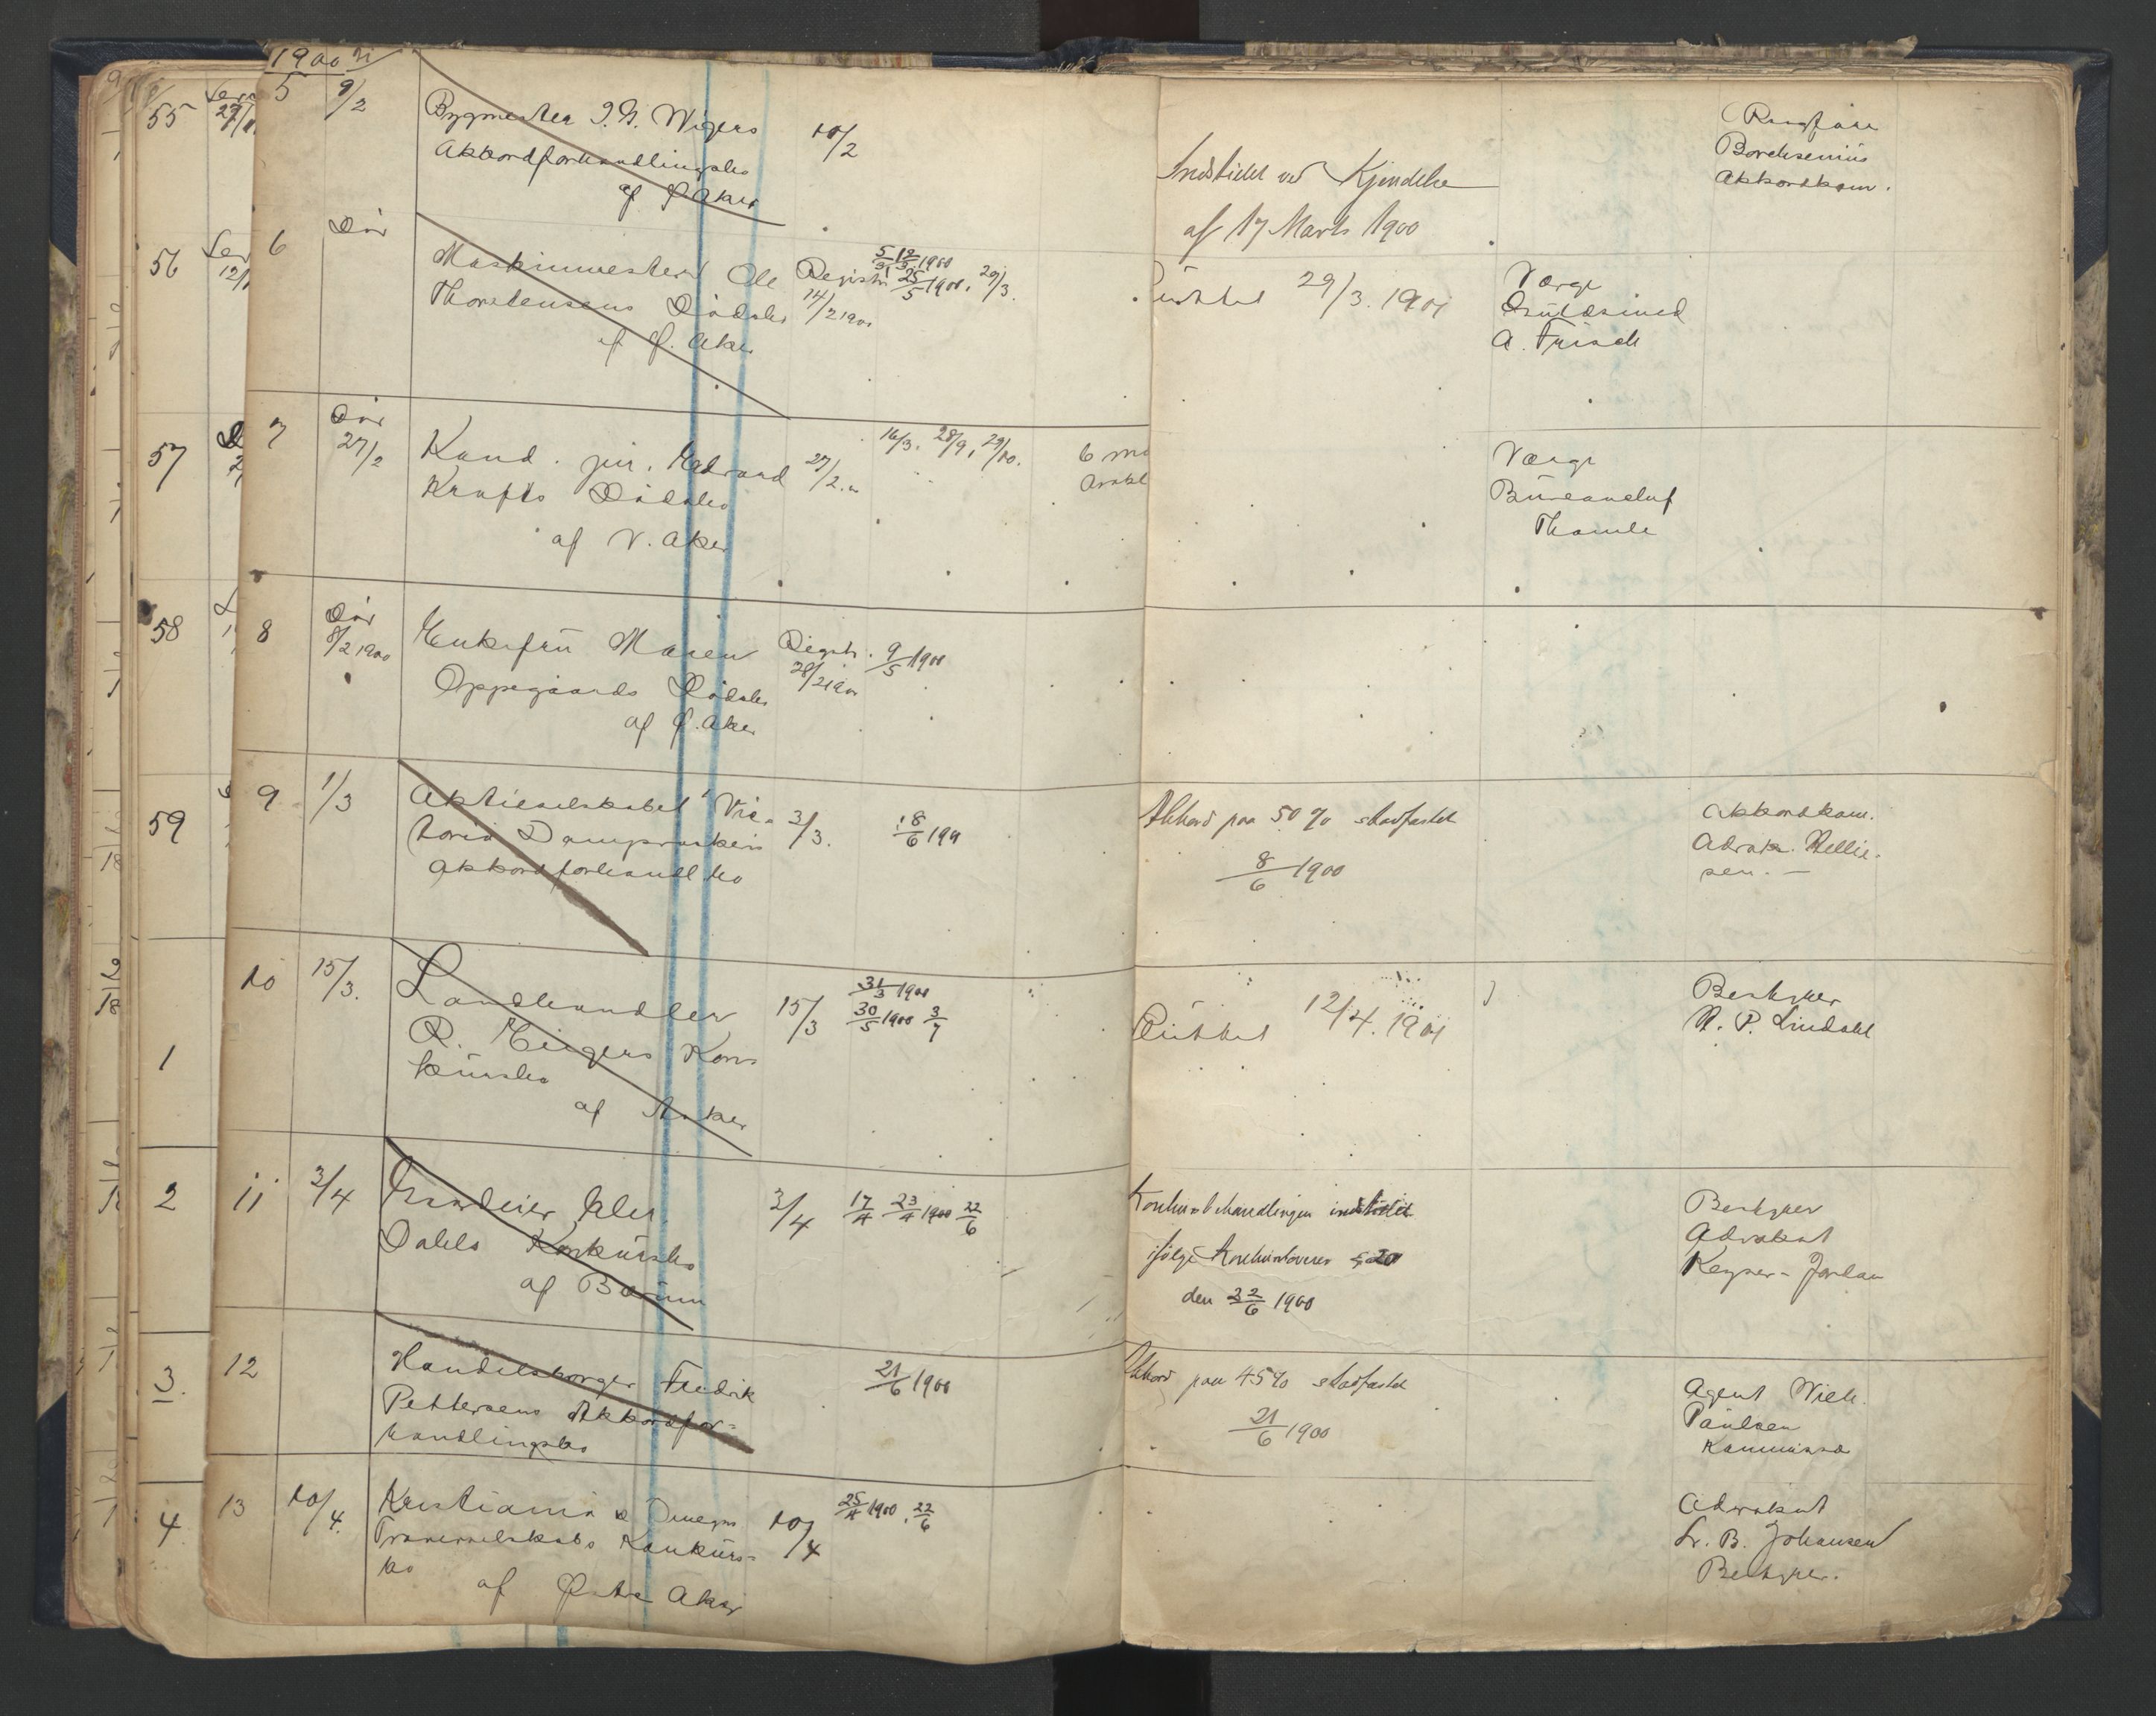 1900
5 9/2 Bygmester I. G. Wigers 10/2
Akkordforhandlingsbo
af Ø Aker
Indstillet ved Kjendelse
af 17 Marts 1900
Borchsenius
Akkordkom.
6 Dør
Maskinmester Ole Registr. 5/3 12/5 1900
25/5 1900, 29/3.
Thorstensens Dødsbo 14/2 1900
af Ø. Aker
Sluttet 29/3. 1901
Værge
A. Frisch
7 Dør
27/2 Kand. jur. Edvard 27/2 16/3. 28/9, 29/10. 6 md
Krafts Dødsbo
af V. Aker
Værge
Bureauchef
Thomle
8 Dør
8/2 1900 Enkefru Maren Registr. 9/5 1900
Oppegaards Dødsbo 28/2 1900
af Ø. Aker
9 1/3 Aktieselskabet Vic- 3/3. 8/6 1900
toria Dampvaskeris
Akkordforhandl bo
Akkord paa 50 % stadfæstet
8/6 1900
Akkordkom.
Advok. Nellie-
sen.
10 15/3. Landhandler 15/3 31/3 1900
30/5 1900 3/7
R. Eigers Kon-
kursbo
af Aker
Sluttet 12/4. 1901
Bestyrer
N. P. Lindahl
11 3/4 Gaardeier Alex. 3/4 17/4 23/4 1900 22/6
Dahls Konkursbo
af Bærum
Konkursbehandlingen indstillet
ifølge Konkursloven § 20
den 22/6 1900
Bestyrer
Advokat
Keyser-Jordan
12 Handelsborger Fredrik 21/6 1900
Pettersens Akkordfor-
handlingsbo
Akkord paa 45% stadfæstet
21/6 1900
Agent Vilh.
Paulsen
Kommissær
13 10/4. Kristiania & Omegns 10/4 25/4 1900, 22/6
Konkurs-
bo af Østre Aker
Advokat
Fr. B. Johansen
Bestyrer.
55
56
57
58
59
1
2
3.
4